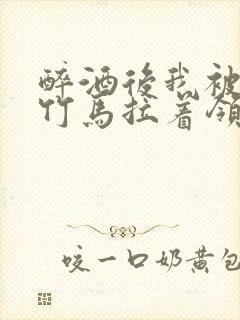 醉酒後我被
竹馬拉着領
咬一口奶黄包